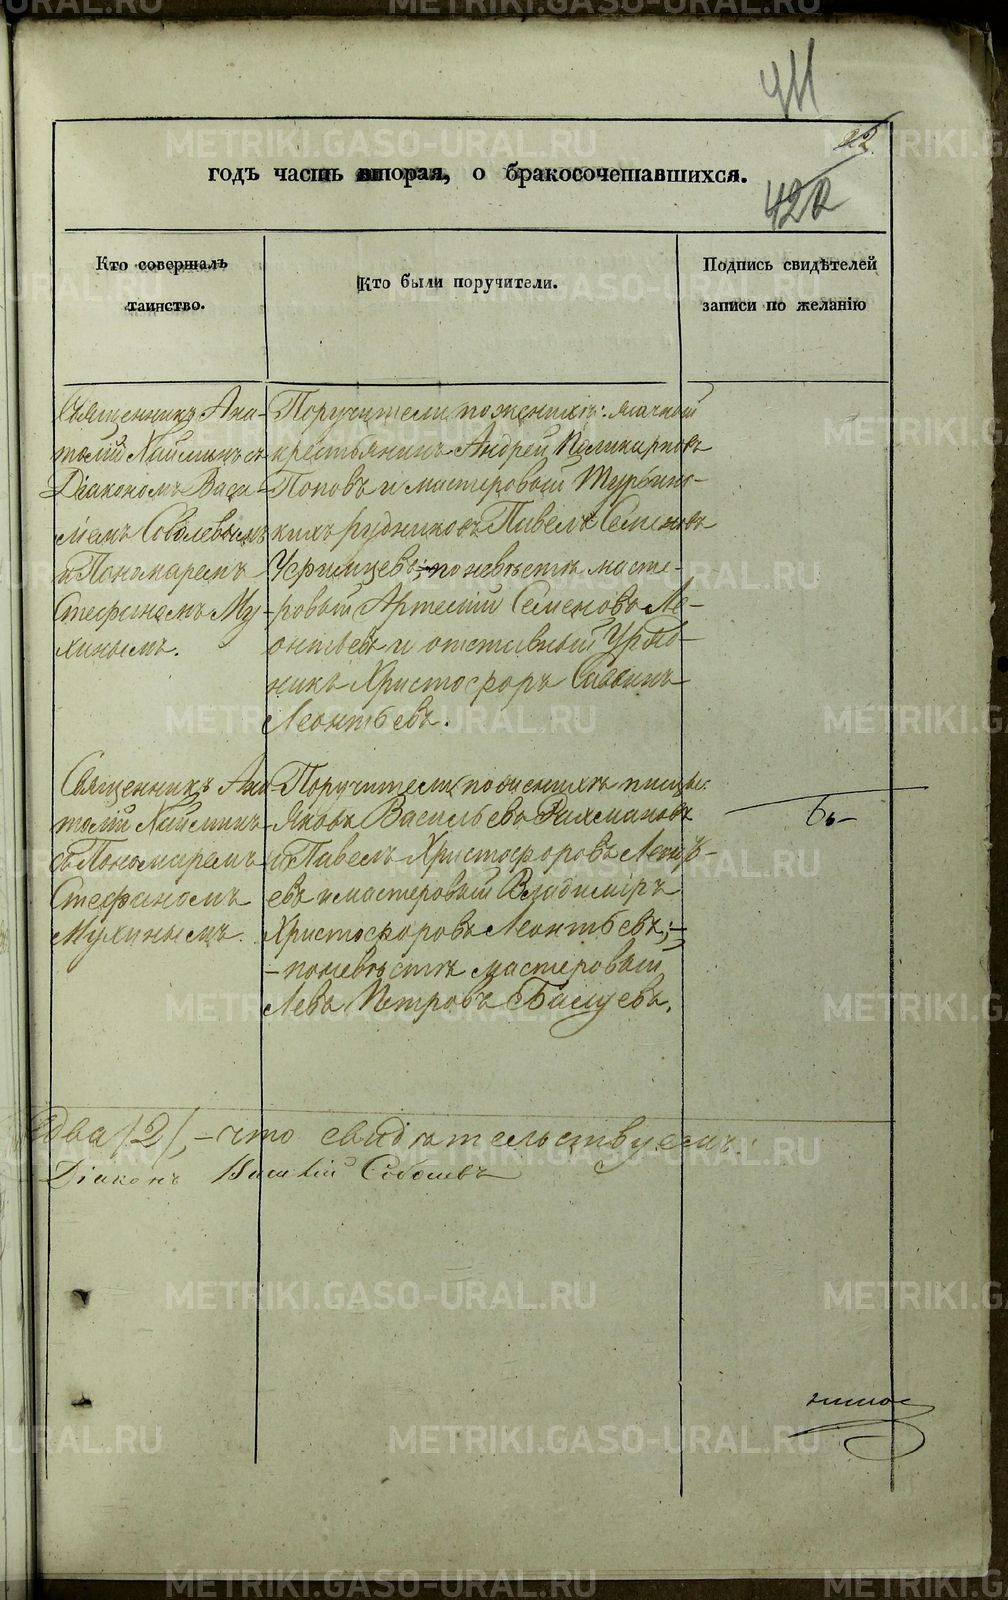 411
22
годъ часть вторая, о бракосочетавшихся.
422
Кто совершалъ
таинство.
Кто были поручители.
Подпись свидѣтелей
записи по желанію
Священникъ Ана-
толій съ
Діакономъ Васи-
ліемъ Соболевымъ
и Пономаремъ
Стефаномъ Му-
хинымъ.
Поручители, по женихѣ:
крестьянинъ Андрей Поликарповъ
Поповъ и мастеровый Турьинс-
кихъ рудниковъ Павелъ Семеновъ
по невѣстѣ масте-
ровый Артемій Семеновъ Ле-
онтьевъ и отставный Уряд-
никъ Христофоръ Саввинъ
Леонтьевъ.
Священникъ Ана
толій
съ Пономаремъ
Стефаномъ
Мухинымъ.
Поручители, по женихѣ писцы:
Яковъ Васильевъ Рахмановъ
и Павелъ Христофоровъ Леонть-
евъ и мастеровый Владиміръ
Христофоровъ Леонтьевъ;-
-по невѣстѣ мастеровый
Левъ Петровъ
два /2/, - что свидѣтельствуемъ:
Діаконъ Василій Соболевъ
METRIKI.GASO-URAL.RU